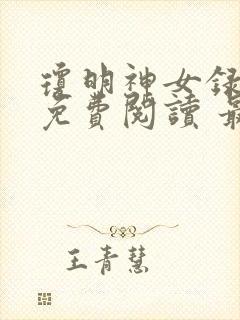 瓊明神女錄
免費閱讀 最
王青慧